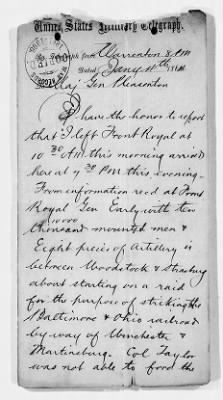 United States Military Telegraph.
By Telegraph from Warrenton 8 PM
Dated Jany 11th 1864
Maj Gen Pleasonton
I have the honor to report
that I left Front Royal at
10 30 AM this morning arrived
here at 7 30 PM this evening—
From information recd at Front
Royal Gen Early with ten
10000
thousand mounted men &
Eight pieces of Artillery is
between Woodstock & Strasburg
about starting on a raid
for the purpose of striking the
Baltimore & Ohio railroad
by way of Winchester &
Martinsburg. Col Taylor
was not able to ford the